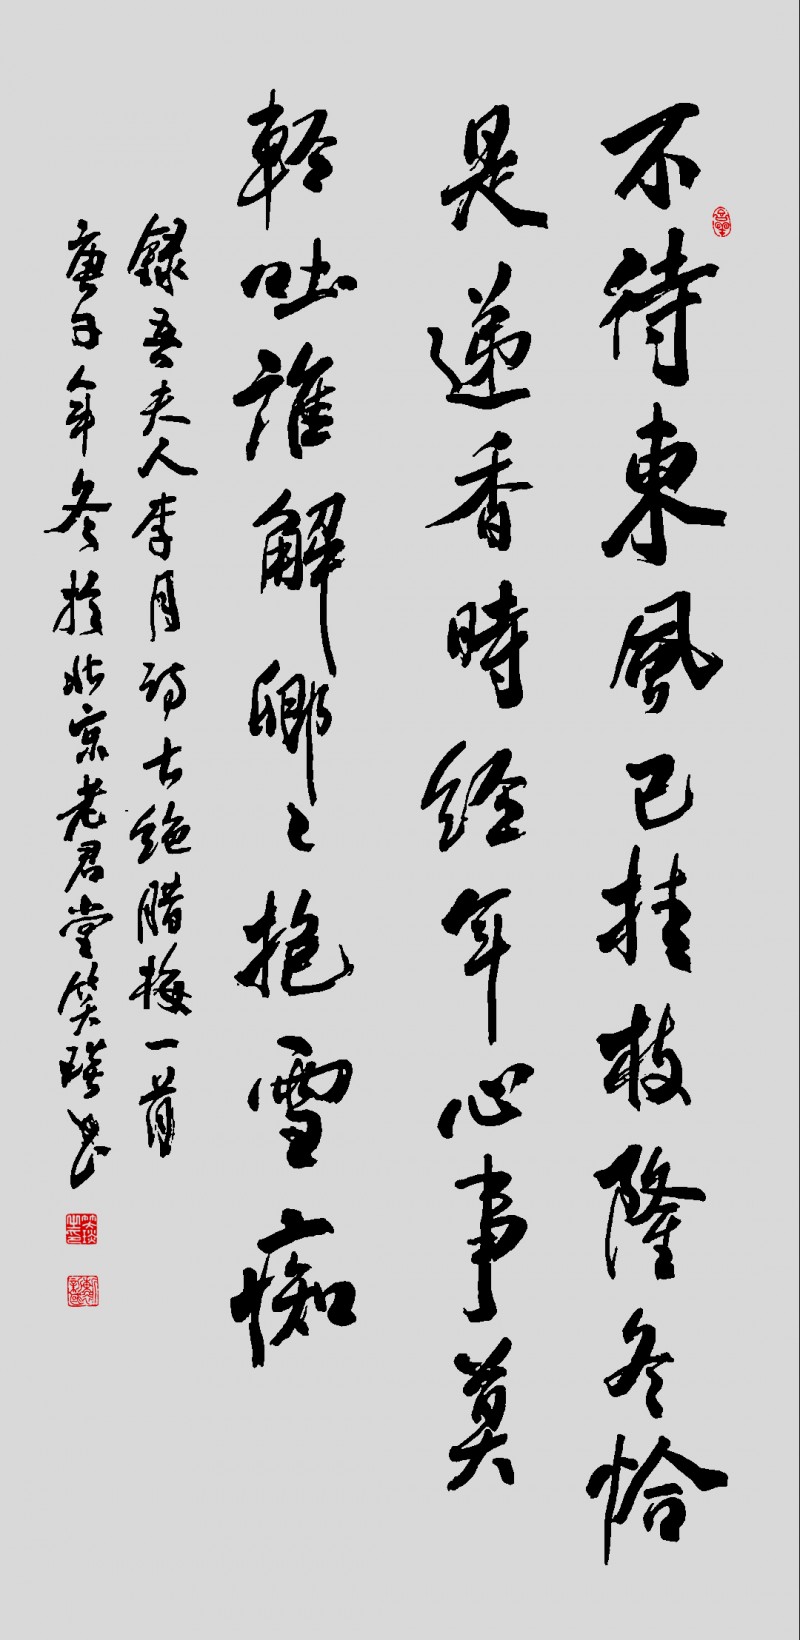 不待東風已挂枝隆冬恰
是递香時经年心事莫
輕吐誰解卿々抱雪痴
錄吾夫人李月诗七绝腊梅一首
庚子年冬於北京老君堂笑琰书